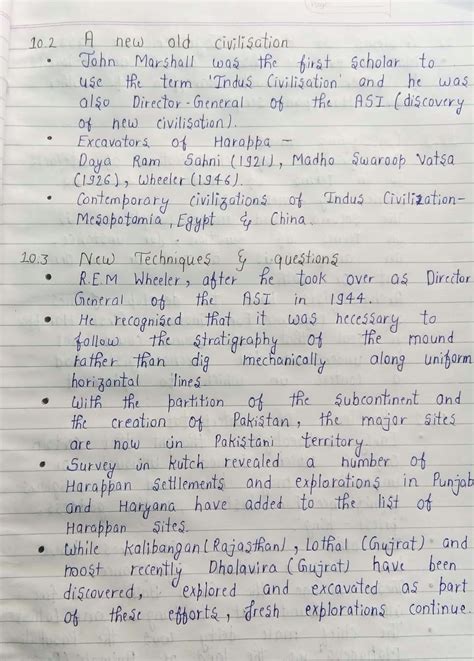 10.2 A new old civilisation
• John Marshall was the first scholar to
use the term 'Indus Civilisation' and he was
also Director-General of the ASI (discovery
of new civilisation).
• Excavators of Harappa –
Daya Ram Sahni (1921), Madho Swaroop Vatsa
(1926), Wheeler (1946).
• Contemporary civilizations of Indus Civilization-
Mesopotamia, Egypt & China.
10.3 New Techniques & questions
• R.E.M Wheeler, after he took over as Director
General of the ASI in 1944.
• He recognised that it was necessary to
follow the stratigraphy of the mound
rather than dig mechanically along uniform
horizantal lines.
• With the partition of the subcontinent and
the creation of Pakistan, the major sites
are now in Pakistani territory.
• Survey in Kutch revealed a number of
Harappan settlements and explorations in Punjab
and Haryana have added to the list of
Harappan sites.
• While Kalibangan (Rajasthan), Lothal (Gujrat) and
most recently Dholavira (Gujrat) have been
discovered, explored and excavated as part
of these efforts, fresh explorations continue.